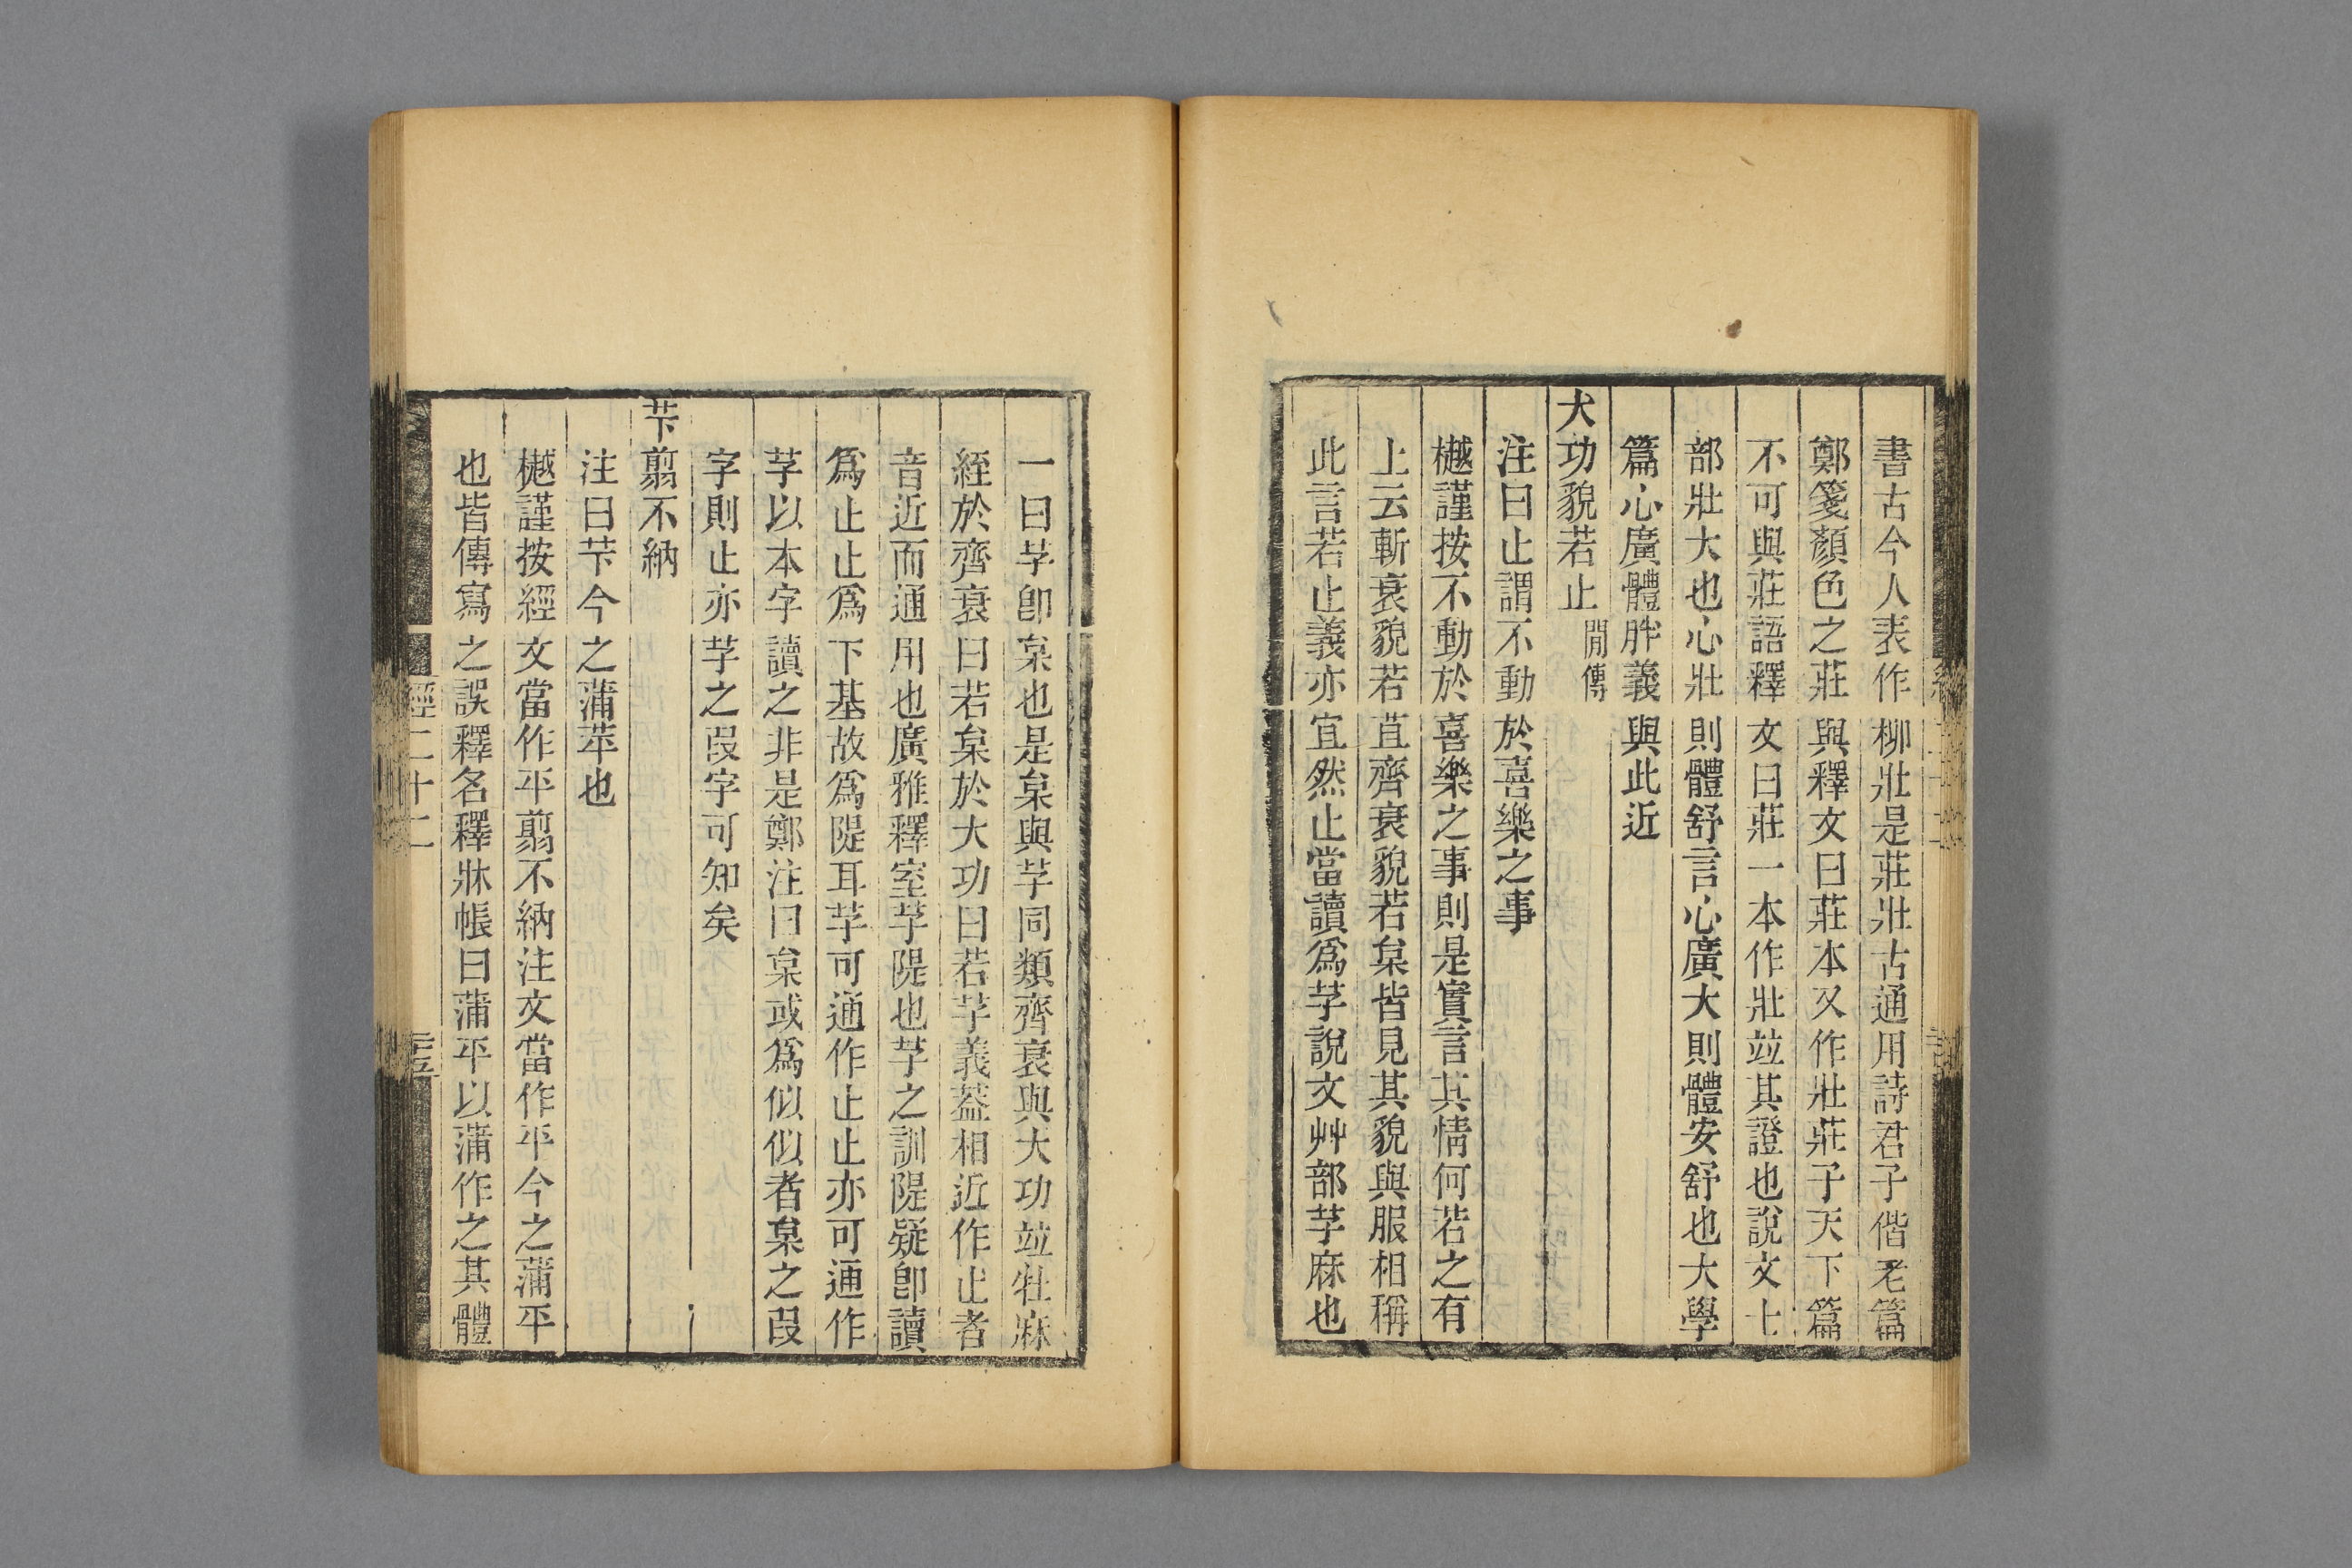 書古今人表作柳壯是莊壯古通用詩君子偕老篇
鄭箋顏色之莊與釋文曰莊本又作壯莊子天下篇
不可與莊語釋文曰莊一本作壯竝其證也說文士
部壯大也心壯則體舒言心廣大則體安舒也大學
篇心廣體胖義與此近
大功貌若止閒傳
注曰止謂不動於喜樂之事
樾謹按不動於喜樂之事則是實言其情何若之有
上云斬衰貌若苴齊衰貌若枲皆見其貌與服相稱
此言若止義亦宜然止當讀爲芓說文艸部芓麻也
一曰芓卽枲也是枲與芓同類齊衰與大功竝牡麻
絰於齊衰曰若枲於大功曰若芓義葢相近作止者
音近而通用也廣雅釋室芓隄也芓之訓隄疑卽讀
爲止止爲下基故爲隄耳芓可通作止止亦可通作
芓以本字讀之非是鄭注曰枲或爲似似者枲之叚
字則止亦芓之叚字可知矣
苄翦不納
注曰苄今之蒲苹也
樾謹按經文當作平翦不納注文當作平今之蒲平
也皆傳寫之誤釋名釋牀帳曰蒲平以蒲作之其體
經二十二
三五